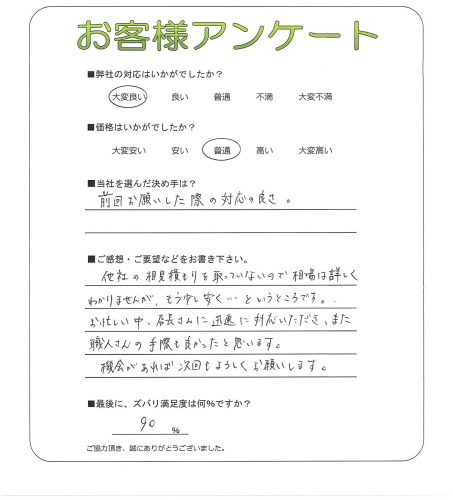 お客様アンケート
■弊社の対応はいかがでしたか？
大変良い 良い 普通 不満 大変不満
■価格はいかがでしたか？
大変安い 安い 普通 高い 大変高い
■当社を選んだ決め手は？
前回お願いした際の対応の良さ。
■ご感想・ご要望などをお書き下さい。
他社の相見積もりを取っていないので相場は詳しく
わかりませんが、もう少し安く…というところです。
お忙しい中、店長さんに迅速に対応いただき、また
職人さんの手際も良かったと思います。
機会があれば次回もよろしくお願いします。
■最後に、ズバリ満足度は何％ですか？
90 ％
ご協力頂き、誠にありがとうございました。